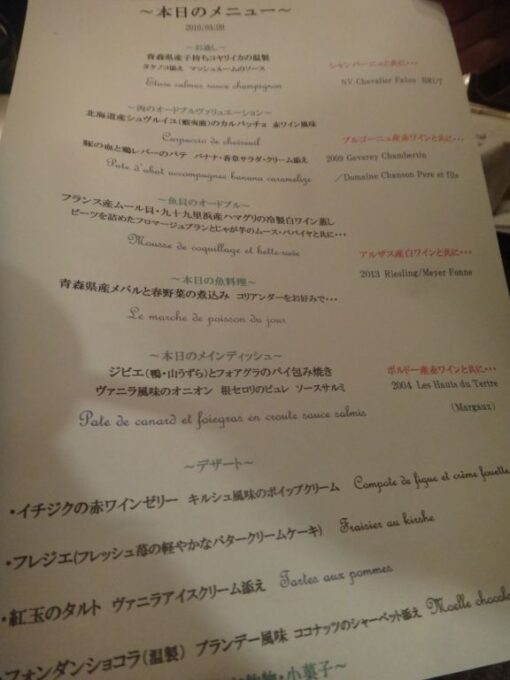 ～本日のメニュー～
2016/03/09
～お通し～
青森県産子持ちコヤリイカの温製
タケノコ添え マッシュルームのソース
シャンパーニュと共に・・・
NV Chevalier Fales BRUT
Etuve calmar sauce champignon
～肉のオードブルヴァリュエーション～
北海道産シュヴルイユ(蝦夷鹿)のカルパッチョ 赤ワイン風味
Carpaccio de chevreuil
ブルゴーニュ産赤ワインと共に・・・
豚の血と鴨レバーのパテ バナナ・香草サラダ・クリーム添え
2009 Geverey Chambertin
Pate d'abat accompagnee banana caramelize
／Domaine Chanson Pere et fils
～魚貝のオードブル～
フランス産ムール貝・九十九里浜産ハマグリの冷製白ワイン蒸し
ビーツを詰めたフロマージュブランとじゃが芋のムース・パパイヤと共に・・・
Mousse de coquillage et bette-rave
アルザス産白ワインと共に・・・
2013 Riesling/Meyer Fonne
～本日の魚料理～
青森県産メバルと春野菜の煮込み コリアンダーをお好みで・・・
Le marche de poisson du jour
～本日のメインディッシュ～
ジビエ(鴨・山うずら)とフォアグラのパイ包み焼き
ヴァニラ風味のオニオン 根セロリのピュレ ソースサルミ
ボルドー産赤ワインと共に・・・
2004 Les Hauts du Tertre
(Margaux)
Pate de canard et foiegras en croute sauce salmis
～デザート～
・イチジクの赤ワインゼリー キルシュ風味のホイップクリーム Compote de figue et crème fouette
・フレジエ(フレッシュ苺の軽やかなバタークリームケーキ) Fraisier au kirshe
・紅玉のタルト ヴァニラアイスクリーム添え Tartes aux pommes
・フォンダンショコラ(温製) ブランデー風味 ココナッツのシャーベット添え Moelle chocola
飲物・小菓子～